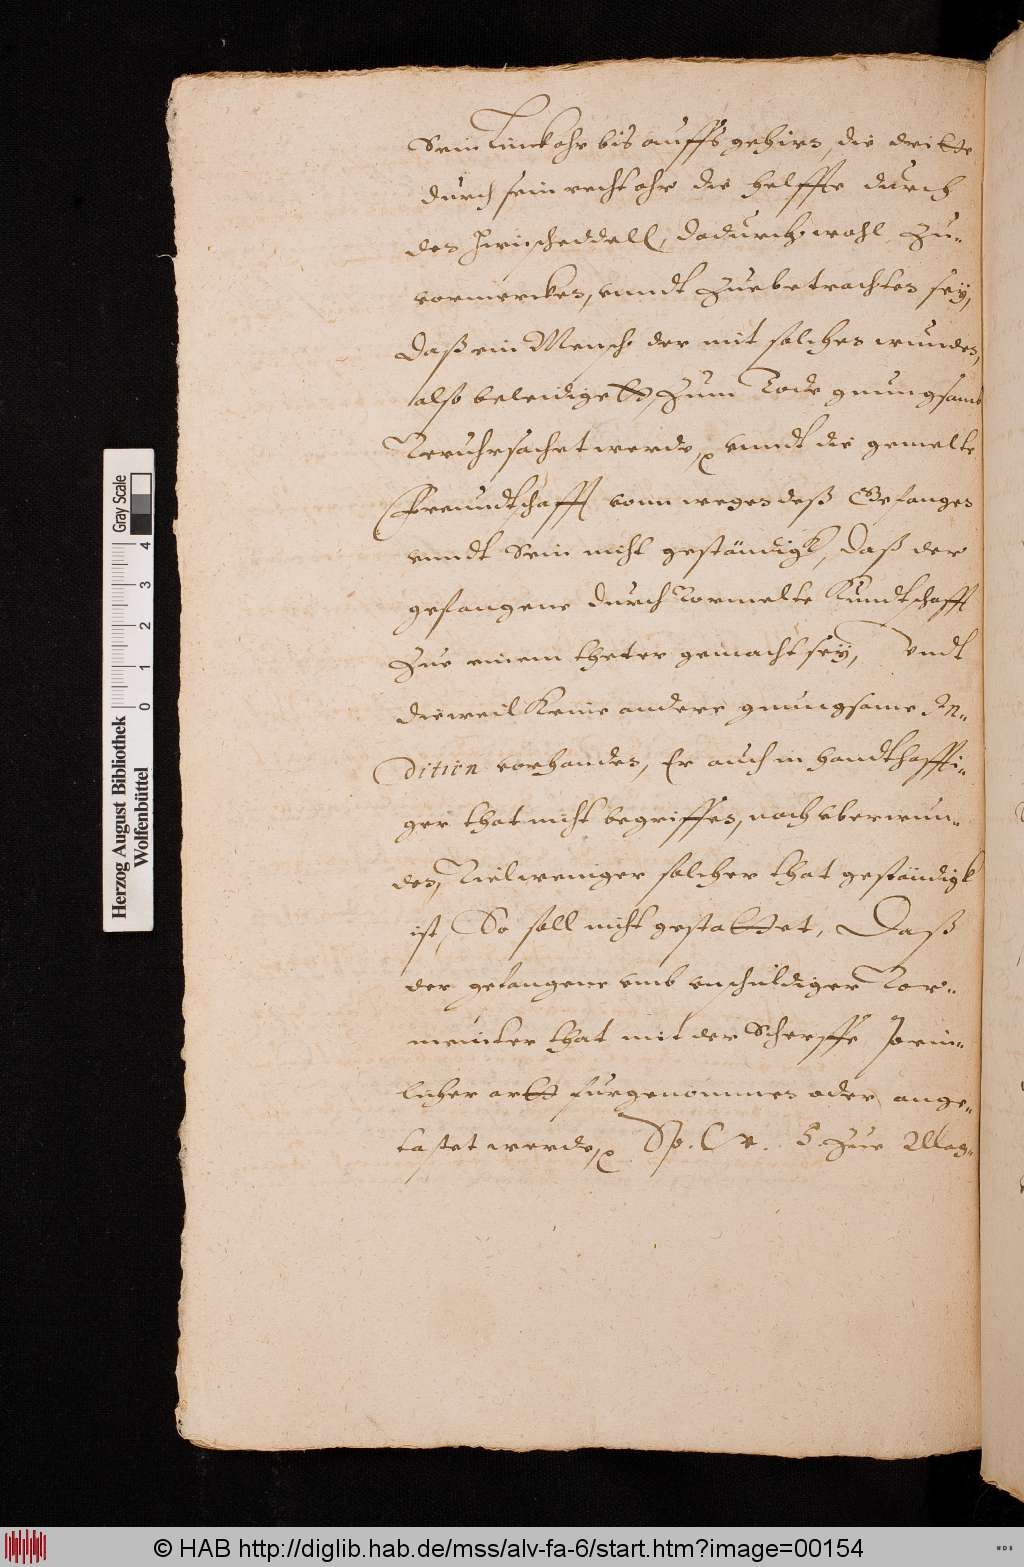 Sein linck ohr bis auffs gehirn, die dritte
durch sein recht ohr die helffte durch
den Hirnscheddell, dadurch wohl zu-
vormercken, vnndt zuebetrachten sey,
Daß ein Mensch der mit solchen wunden,
also beleidigett, zum Tode gnungsamb
Veruhrsachet werde, vnndt die gemelte
Freundtschafft vonn wegen deß Gefangen
vnndt Sein nicht geständigk, daß der
gefangene durch Vormelte Kundtschafft
zue einem theter gemacht sey, Vndt
dieweil Keine andere gnungsame In-
ditien vorhanden, Er auch in handthaffti-
ger that nicht begriffen, noch vberwun-
den, Vielweniger solcher that geständigk
ist, So soll nicht gestattet, Daß
der gefangene vmb vnschuldiger Vor-
meinter that mit der Scherffe Pein-
licher artt furgenommen oder ange-
tastet werde, Sp. C r. S. zue Mag-
Herzog August Bibliothek
Wolfenbüttel
0 1 2 3 4
Gray Scale
© HAB http://diglib.hab.de/mss/alv-fa-6/start.htm?image=00154